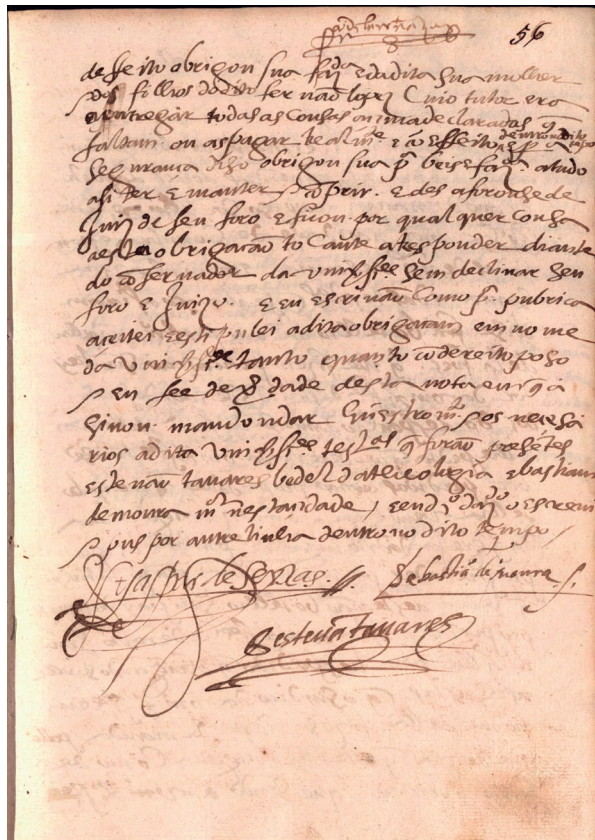 56
de ffeito obrigou sua faz.da e da dita sua molher
e dos filhos do dito fernão lopz Cujo tutor era
a entregar todas as Cousas aqui declaradas q
faltam ou as pagar Realm.te e cõ effeito dentro no dito tpo
segurança disso obrigou sua p. beis e faz.da a tudo
asi ter e manter e cõprir. e desaforouse de
Juiz de seu foro e ficou por qual quer Cousa
a esta obrigação to Cante a Responder diante
do cõservador da vniv.sid.e sem declinar seu
foro e Juizo. e eu escrivão Como p. pubrica
aceitei e estipulei a dita obrigaçam em nome
da vniv.sid.e tanto quanto cõ dereito poso
e em fee de v.dade desta nota em q a
sinou mandou dar os estrom.tos necesa
rios a dita vniv.sid.e tes.tas q forão presẽtes
estevão tavares bedel da teologia e bastiam
de moura m.or nesta cidade, e eu o escrevi
e pus por antrelinha dentro no dito tempo
de Seixas.
Sebastiã de moura.
estevã tavares